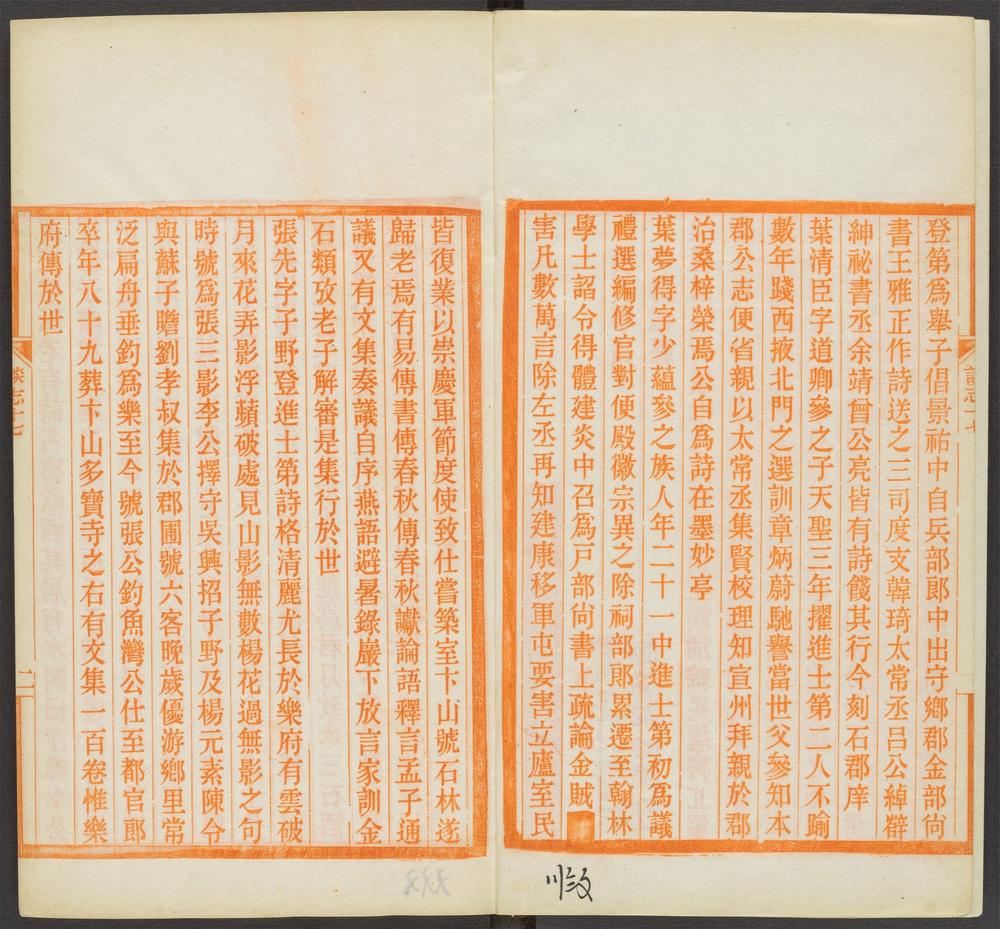 登第爲舉子倡景祐中自兵部郎中出守鄉郡金部尙
書王雅正作詩送之三司度支韓琦太常丞呂公綽辥
紳祕書丞余靖曾公亮皆有詩餞其行今刻石郡庠
葉清臣字道卿參之子天聖三年擢進士第二人不踰
數年踐西掖北門之選訓章炳蔚馳譽當世父參知本
郡公志便省親以太常丞集賢校理知宣州拜親於郡
治桑梓榮焉公自爲詩在墨妙亭
葉夢得字少蘊參之族人年二十一中進士第初爲議
禮選編修官對便殿徽宗異之除祠部郎累遷至翰林
學士詔令得體建炎中召爲戸部尙書上疏論金賊
害凡數萬言除左丞再知建康移軍屯要害立廬室民
皆復業以崇慶軍節度使致仕嘗築室卞山號石林遂
歸老焉有易傳書傳春秋傳春秋讞論語釋言孟子通
議又有文集奏議自序燕語避暑錄嚴下放言家訓金
石類攷老子解審是集行於世
張先字子野登進士第詩格清麗尤長於樂府有雲破
月來花弄影浮蘋破處見山影無數楊花過無影之句
時號爲張三影李公擇守吳興招子野及楊元素陳令
與蘇子瞻劉孝叔集於郡圃號六客晚歲優游鄉里常
泛扁舟垂釣爲樂至今號張公釣魚灣公仕至都官郎
卒年八十九葬卞山多寶寺之右有文集一百卷惟樂
府傳於世
談志十七
二